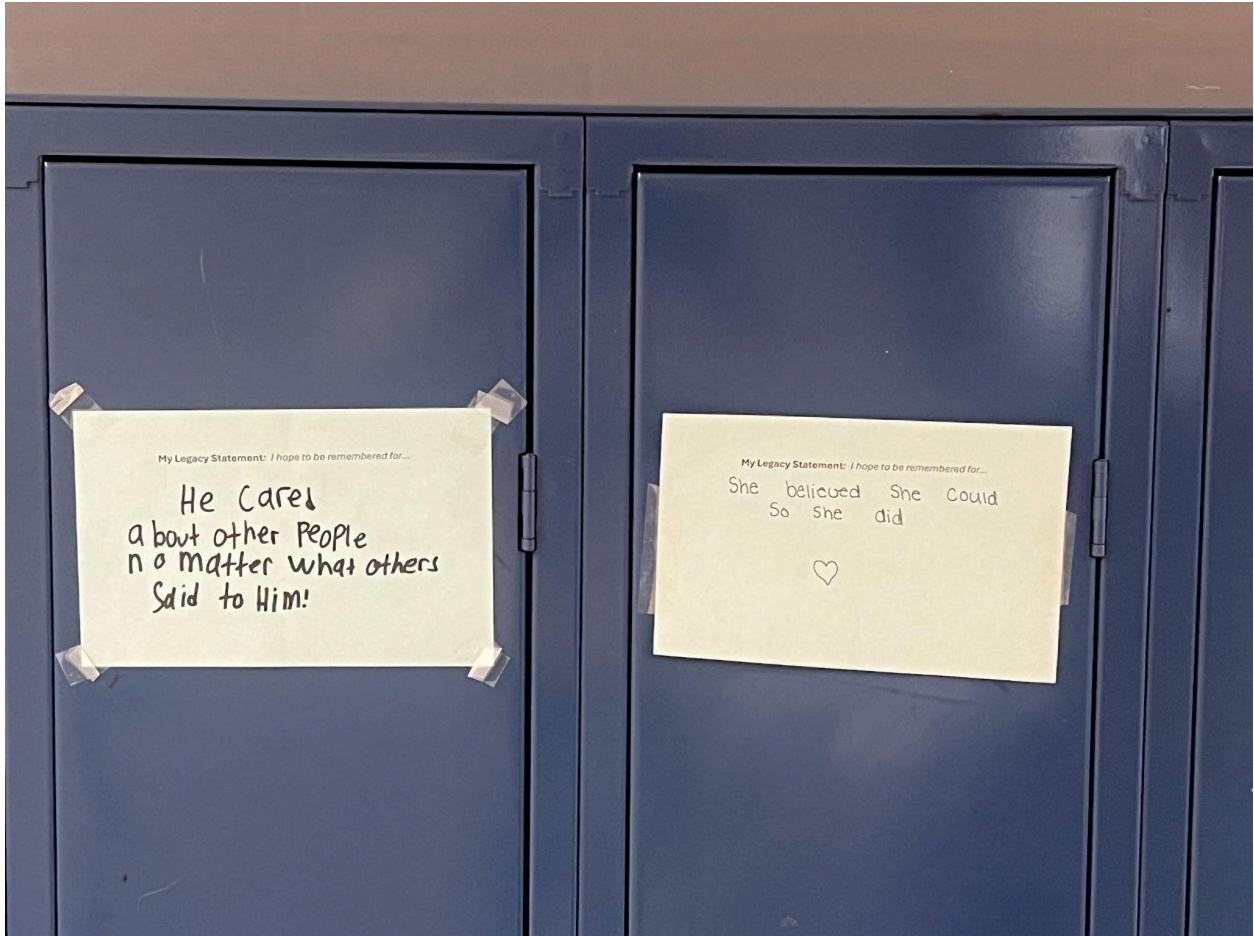 My Legacy Statement: I hope to be remembered for...
He Cared
about other People
no matter what others
Said to Him!
My Legacy Statement: I hope to be remembered for...
She believed She Could
So she did